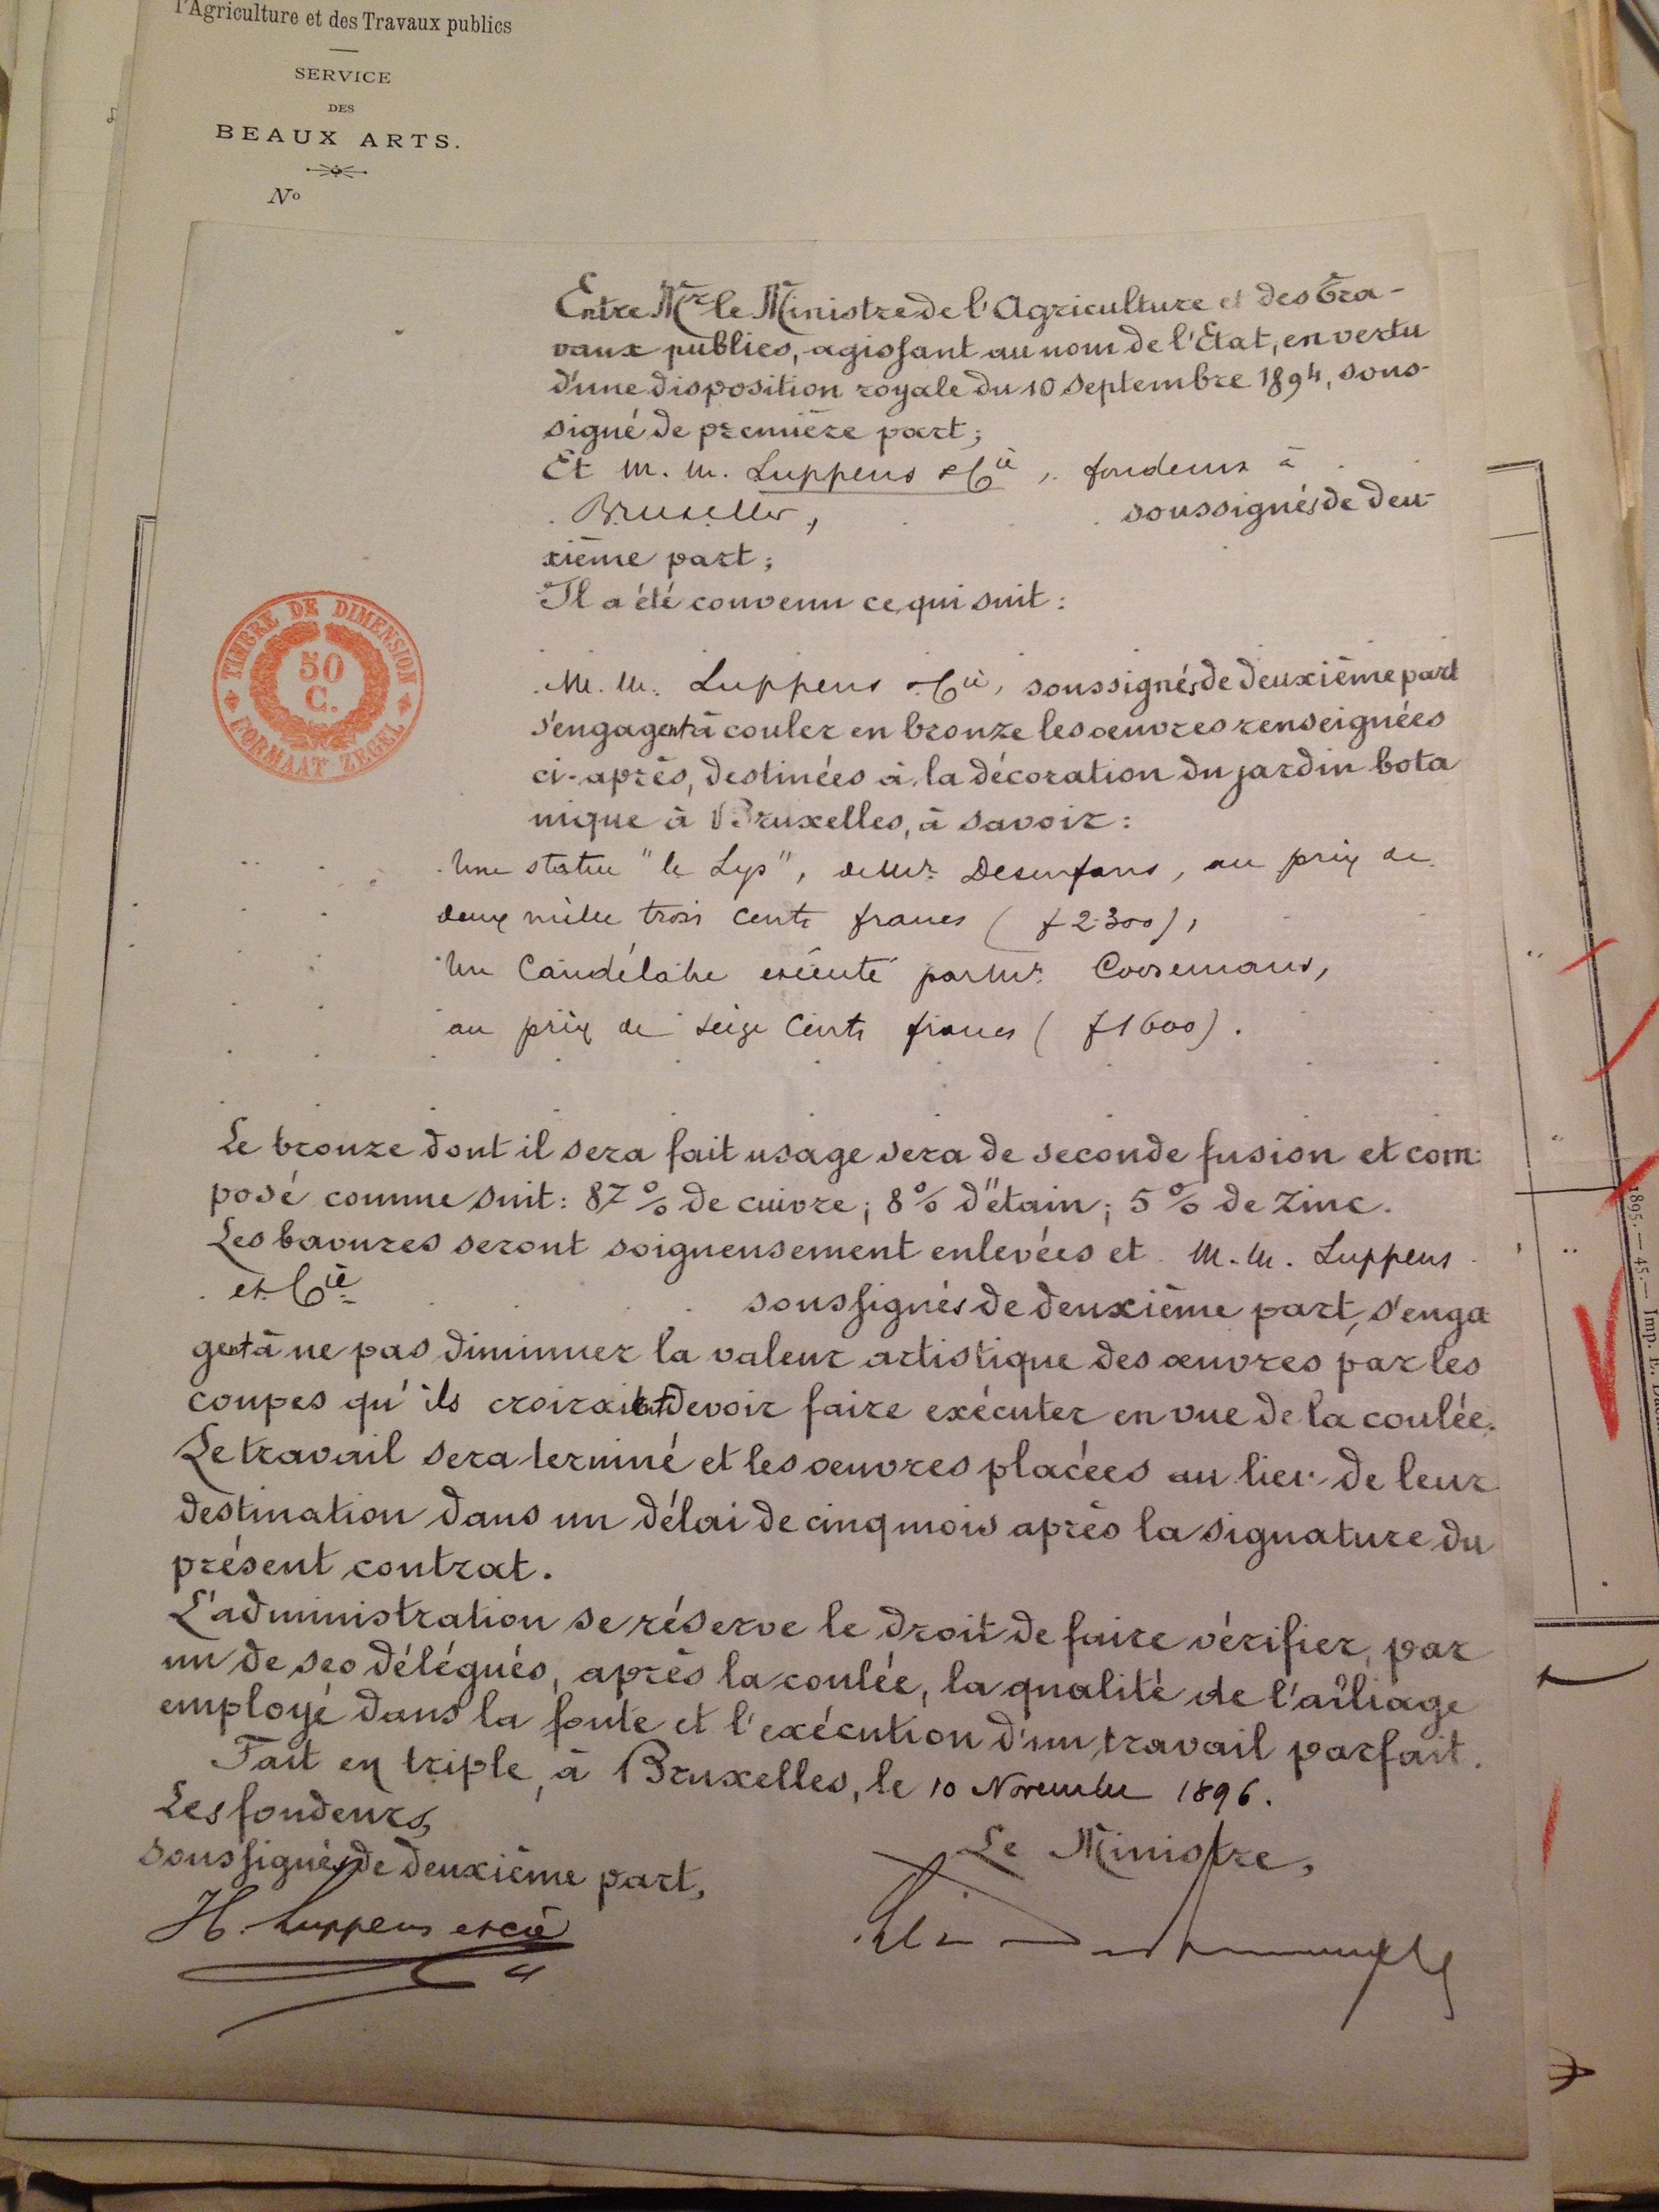 l'Agriculture et des Travaux publics
SERVICE
DES
BEAUX ARTS.
Nº
Entre Mr le Ministre de l'Agriculture et des Tra-
vaux publics, agissant au nom de l'Etat, en vertu
d'une disposition royale du 10 septembre 1894, sous-
signé de première part;
Et M. M. Luppens & Cie, fondeurs à
Bruxelles, soussignés de deu-
xième part;
Il a été convenu ce qui suit:
M. M. Luppens & Cie, soussignés de deuxième part
s'engagent à couler en bronze les oeuvres renseignées
ci-après, destinées à la décoration du jardin bota
nique à Bruxelles, à savoir:
Une statue "le Lys", de Mr. Desenfans, au prix de
deux mille trois cents francs (f 2.300),
Un Candélabre exécuté par Mr. Coosemans,
au prix de seize cents francs (f 1600).
TIMBRE DE DIMENSION
50
C.
FORMAAT ZEGEL
Le bronze dont il sera fait usage sera de seconde fusion et com-
posé comme suit: 87 % de cuivre; 8 % d'étain; 5 % de zinc.
Les bavures seront soigneusement enlevées et M. M. Luppens
et Cie
soussignés de deuxième part, s'enga
gent à ne pas diminuer la valeur artistique des œuvres par les
coupes qu'ils croiraient devoir faire exécuter en vue de la coulée.
Le travail sera terminé et les oeuvres placées au lieu de leur
destination dans un délai de cinq mois après la signature du
présent contrat.
L'administration se réserve le droit de faire vérifier, par
un de ses délégués, après la coulée, la qualité de l'alliage
employé dans la fonte et l'exécution d'un travail parfait.
Fait en triple, à Bruxelles, le 10 Novembre 1896.
Les fondeurs,
soussignés de deuxième part,
H. Luppens et cie
Le Ministre,
1895. — 45. — Imp. E.